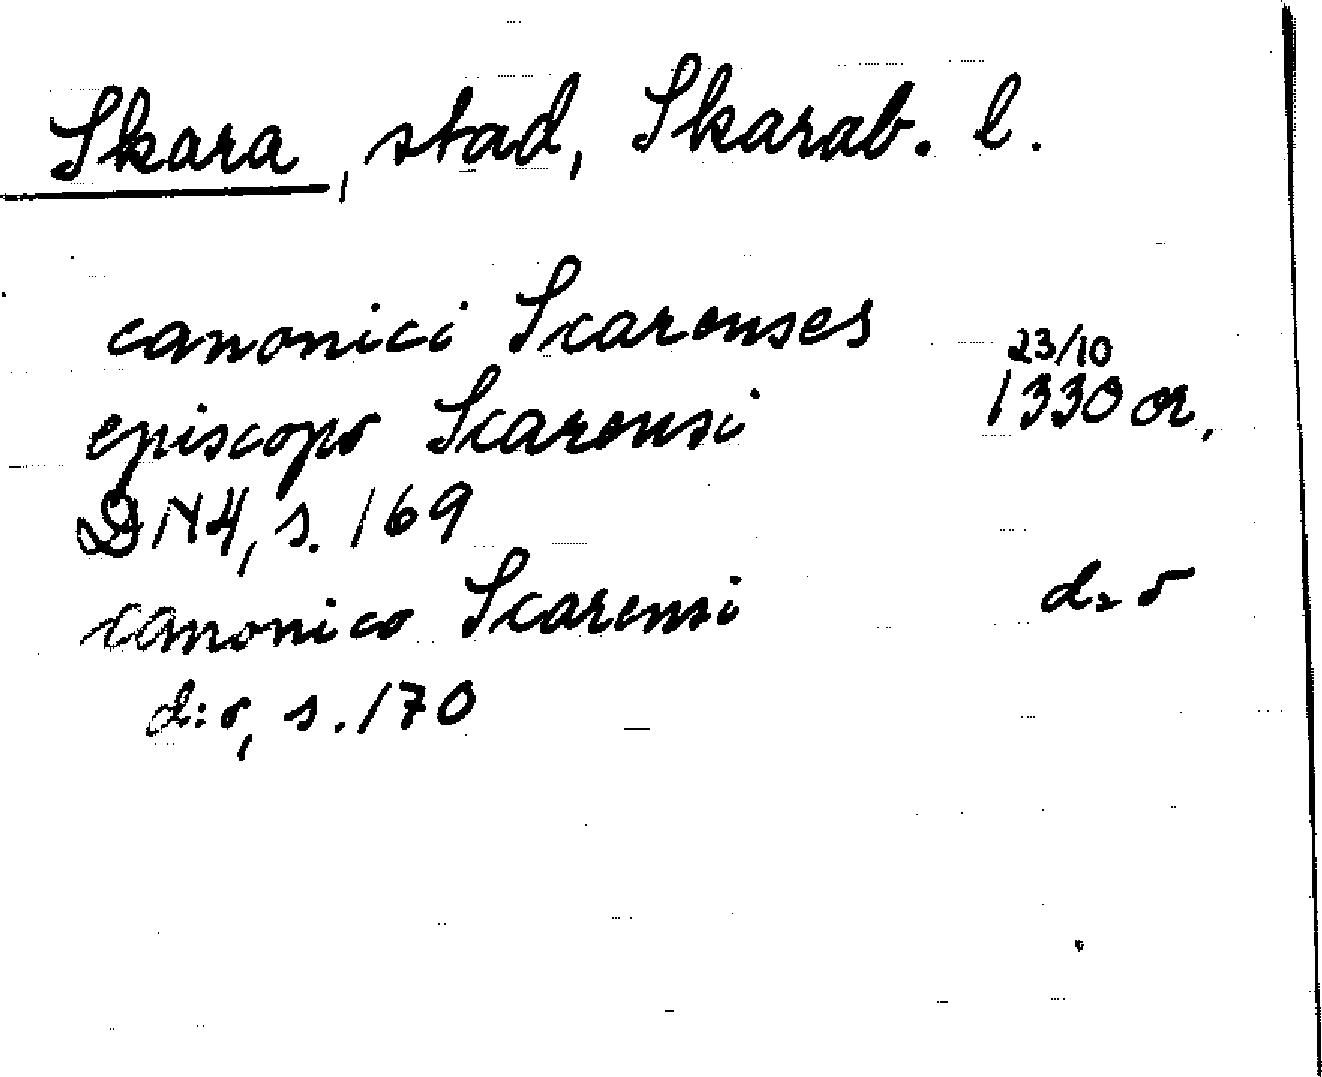 Skara, stad, Skarab. l.
canonici Scarenses 23/10
episcopo Scarensi 1330 or.
DN4, s. 169
canonico Scarensi d:o
d:o, s. 170